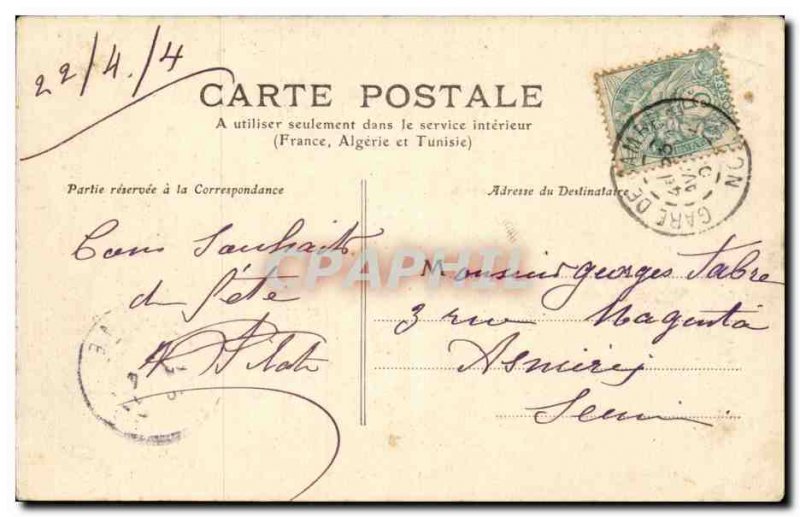 22/4/4
CARTE POSTALE
A utiliser seulement dans le service intérieur
(France, Algérie et Tunisie)
Partie réservée à la Correspondance
Adresse du Destinataire
GARE DE
Bons Souhaits
de fête
CPAPHIL
Monsieur Georges Fabre
3 rue Magenta
Asnières
Seine